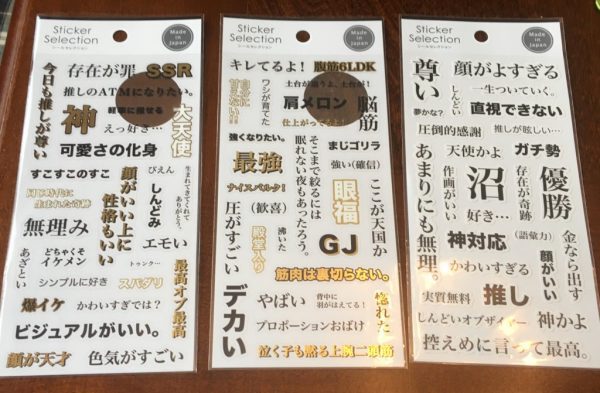 Sticker
Selection
シールセレクション
Made in Japan
今日も推しが尊い
存在が罪
SSR
推しのATMになりたい。
神
軽率に推せる
えっ好き…
大天使
可愛さの化身
すこすこのすこ
ぴえん
生まれてきてくれてありがとう。
同じ時代に
生まれた奇跡
顔がいい上に
性格もいい
しんどみ
無理み
エモい
あざとい
どちゃくそ
イケメン
トゥンク…
シンプルに好き
スパダリ
最高オブ最高
爆イケ
かわいすぎでは?
ビジュアルがいい。
顔が天才
色気がすごい
Sticker
Selection
シールセレクション
Made in Japan
キレてるよ!
腹筋6LDK
自分に
甘えない!!
ワシが育てた
土台が違うよ、土台が!
肩メロン
仕上がってるよ!
脳筋
強くなりたい。
そこまで絞るには
眠れない夜もあったろう。
まじゴリラ
最強
強い(確信)
ナイスバルク!
眼福
ここが天国か
圧がすごい
(歓喜)
殿堂入り
沸いた
GJ
筋肉は裏切らない。
デカい
やばい
背中に
羽がはえてる!
惚れた
プロポーションおばけ
泣く子も黙る上腕二頭筋
Sticker
Selection
シールセレクション
Made in Japan
尊い
顔がよすぎる
しんどい
一生ついていく。
夢かな?
直視できない
圧倒的感謝
推しが眩しい…
あまりにも無理。
天使かよ
ガチ勢
作画がいい
沼
存在が奇跡
優勝
好き…
神対応
(語彙力)
金なら出す
かわいすぎる
顔がいい
実質無料
推し
しんどいオブザイヤー
神かよ
控えめに言って最高。